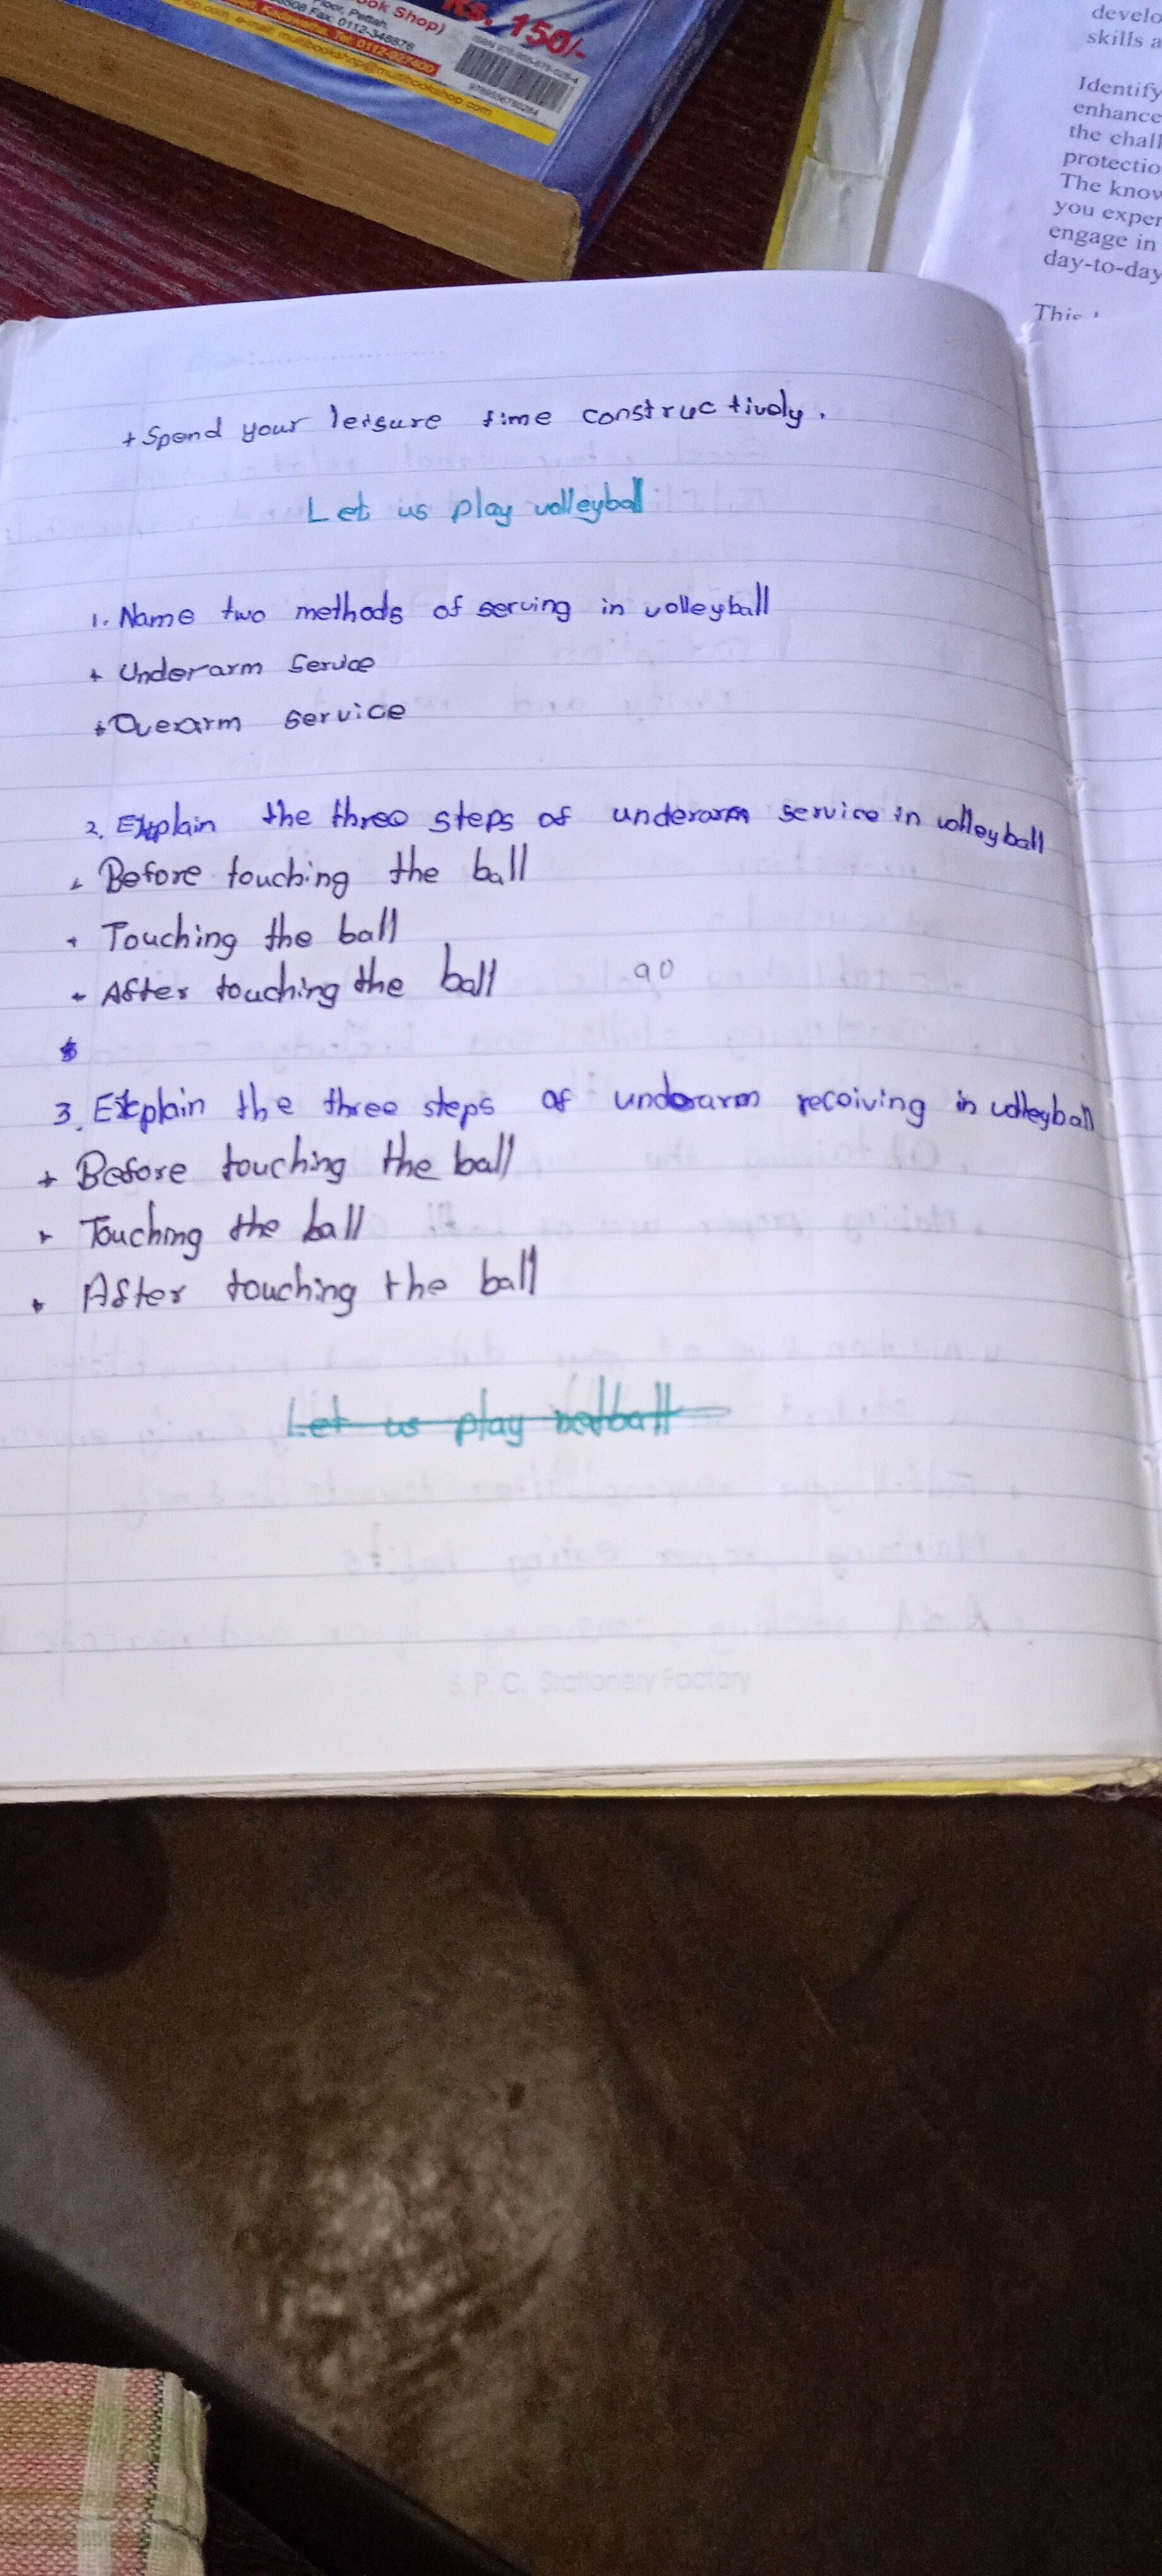 ook Shop)
Rs. 150/-
Floor, Pettah.
Fax: 0112-348876
Tel: 0112-027400
e-mail: multibookshop@multibookshop.com
develo
skills a
Identify
enhance
the chall
protectio
The know
you exper
engage in
day-to-day
This
+ Spend your leisure time constructively.
Let us play volleyball
1. Name two methods of serving in volleyball
+ Underarm Service
+ Overarm service
2. Explain the three steps of underarm service in volleyball
+ Before touching the ball
+ Touching the ball
+ After touching the ball
90
3. Explain the three steps of underarm receiving in volleyball
+ Before touching the ball
+ Touching the ball
+ After touching the ball
Let us play netball
S. P. C. Stationery Factory